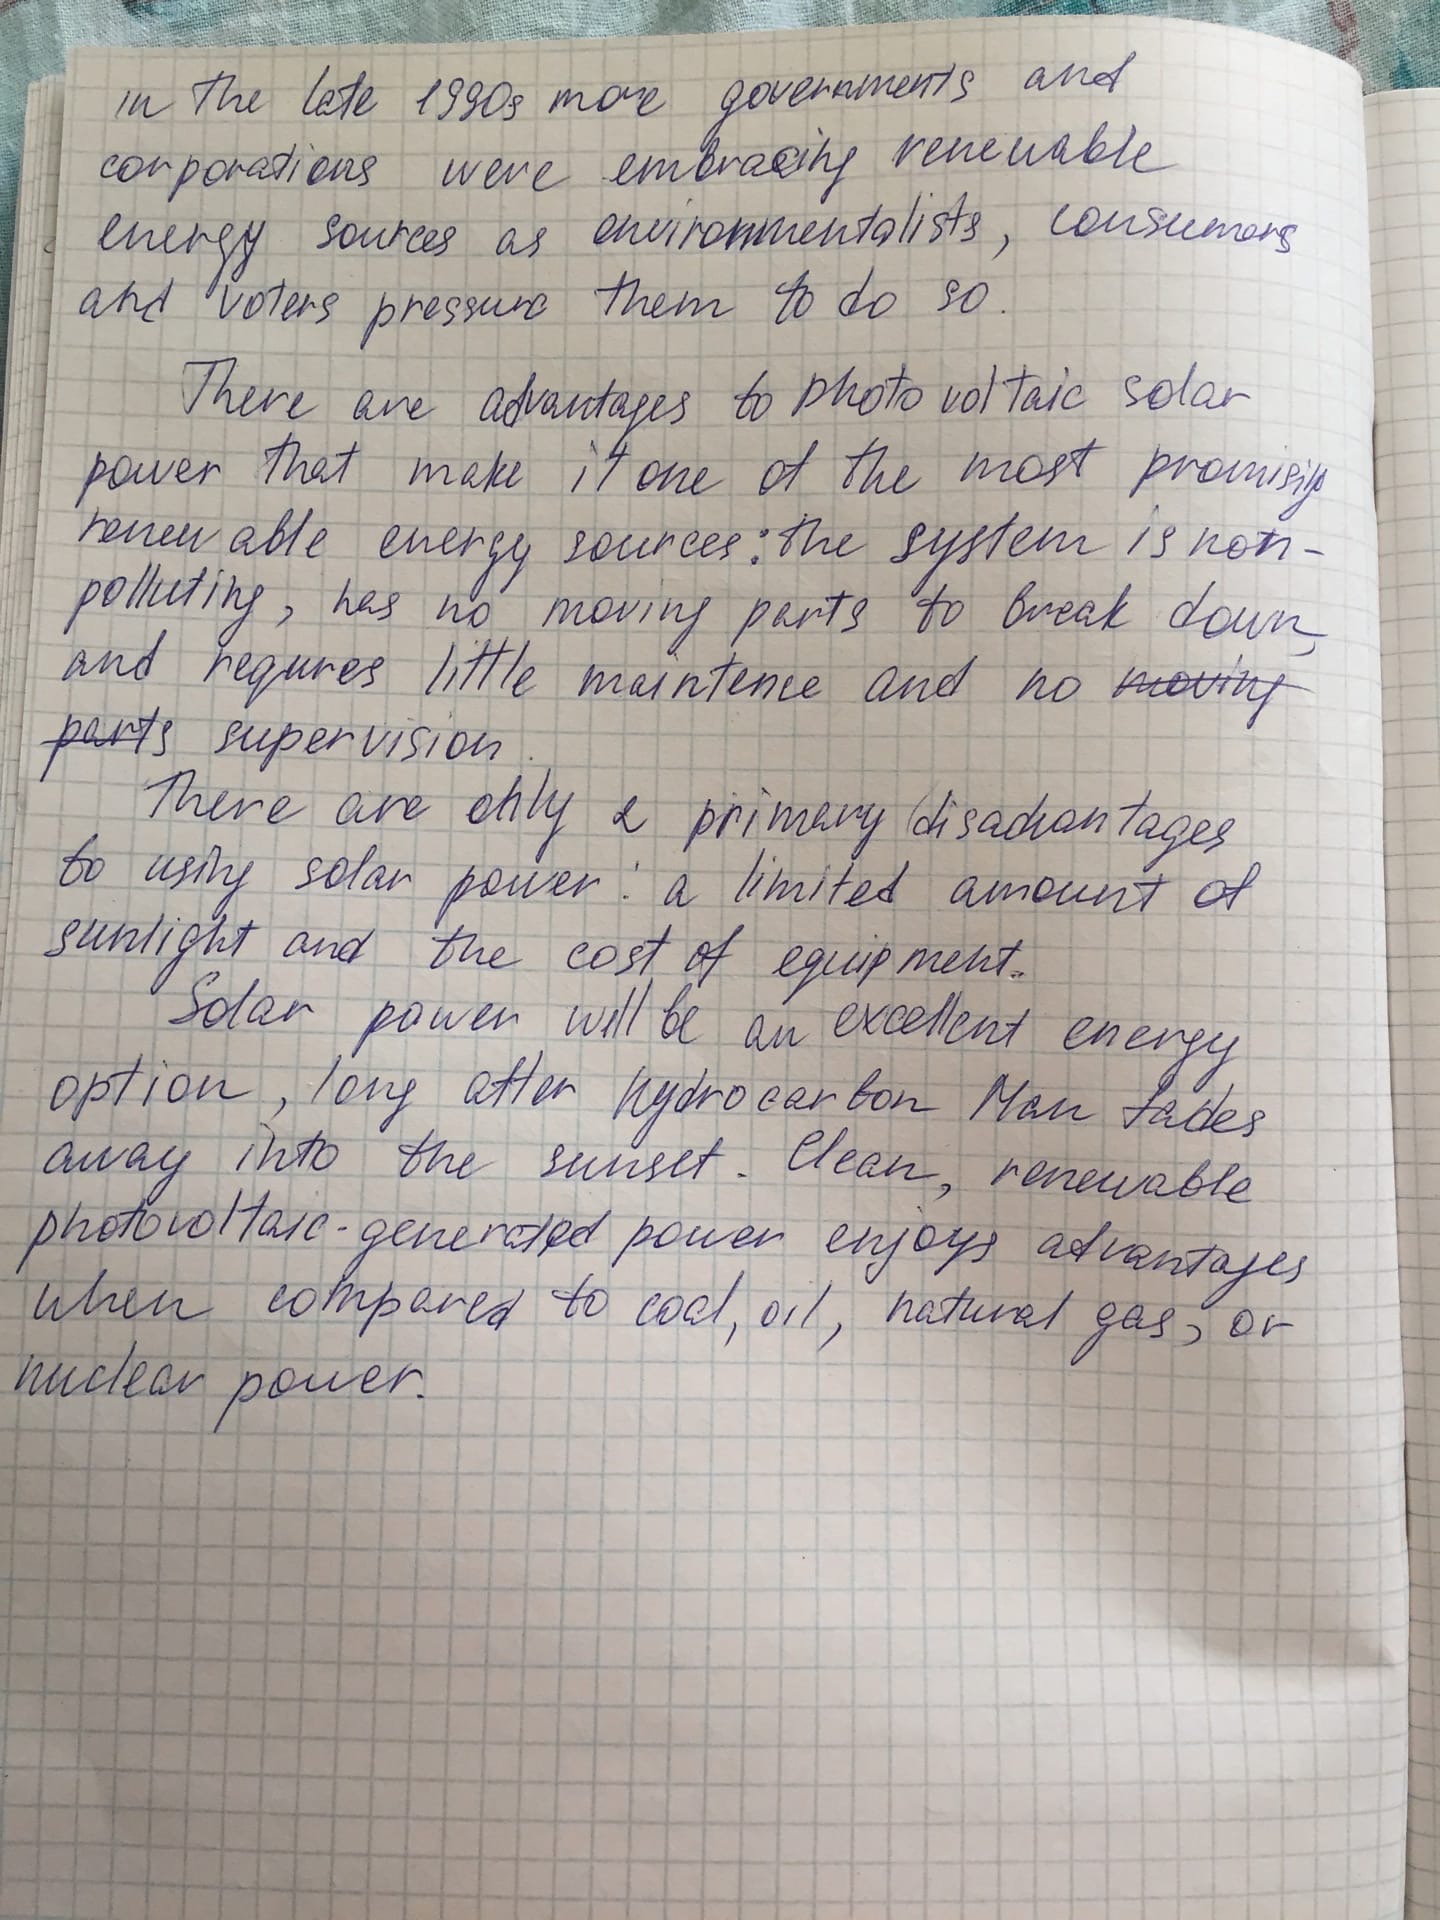 in the late 1990s more governments and
corporations were embracing renewable
energy sources as environmentalists, consumers
and voters pressure them to do so.
There are advantages to photovoltaic solar
power that make it one of the most promising
renewable energy sources: the system is non-
polluting, has no moving parts to break down,
and requres little maintence and no moving
parts supervision.
There are only 2 primary disadvantages
to using solar power: a limited amount of
sunlight and the cost of equipment.
Solar power will be an excellent energy
option, long after hydrocarbon Man fades
away into the sunset. Clean, renewable
photovoltaic-generated power enjoys advantages
when compared to coal, oil, natural gas, or
nuclear power.